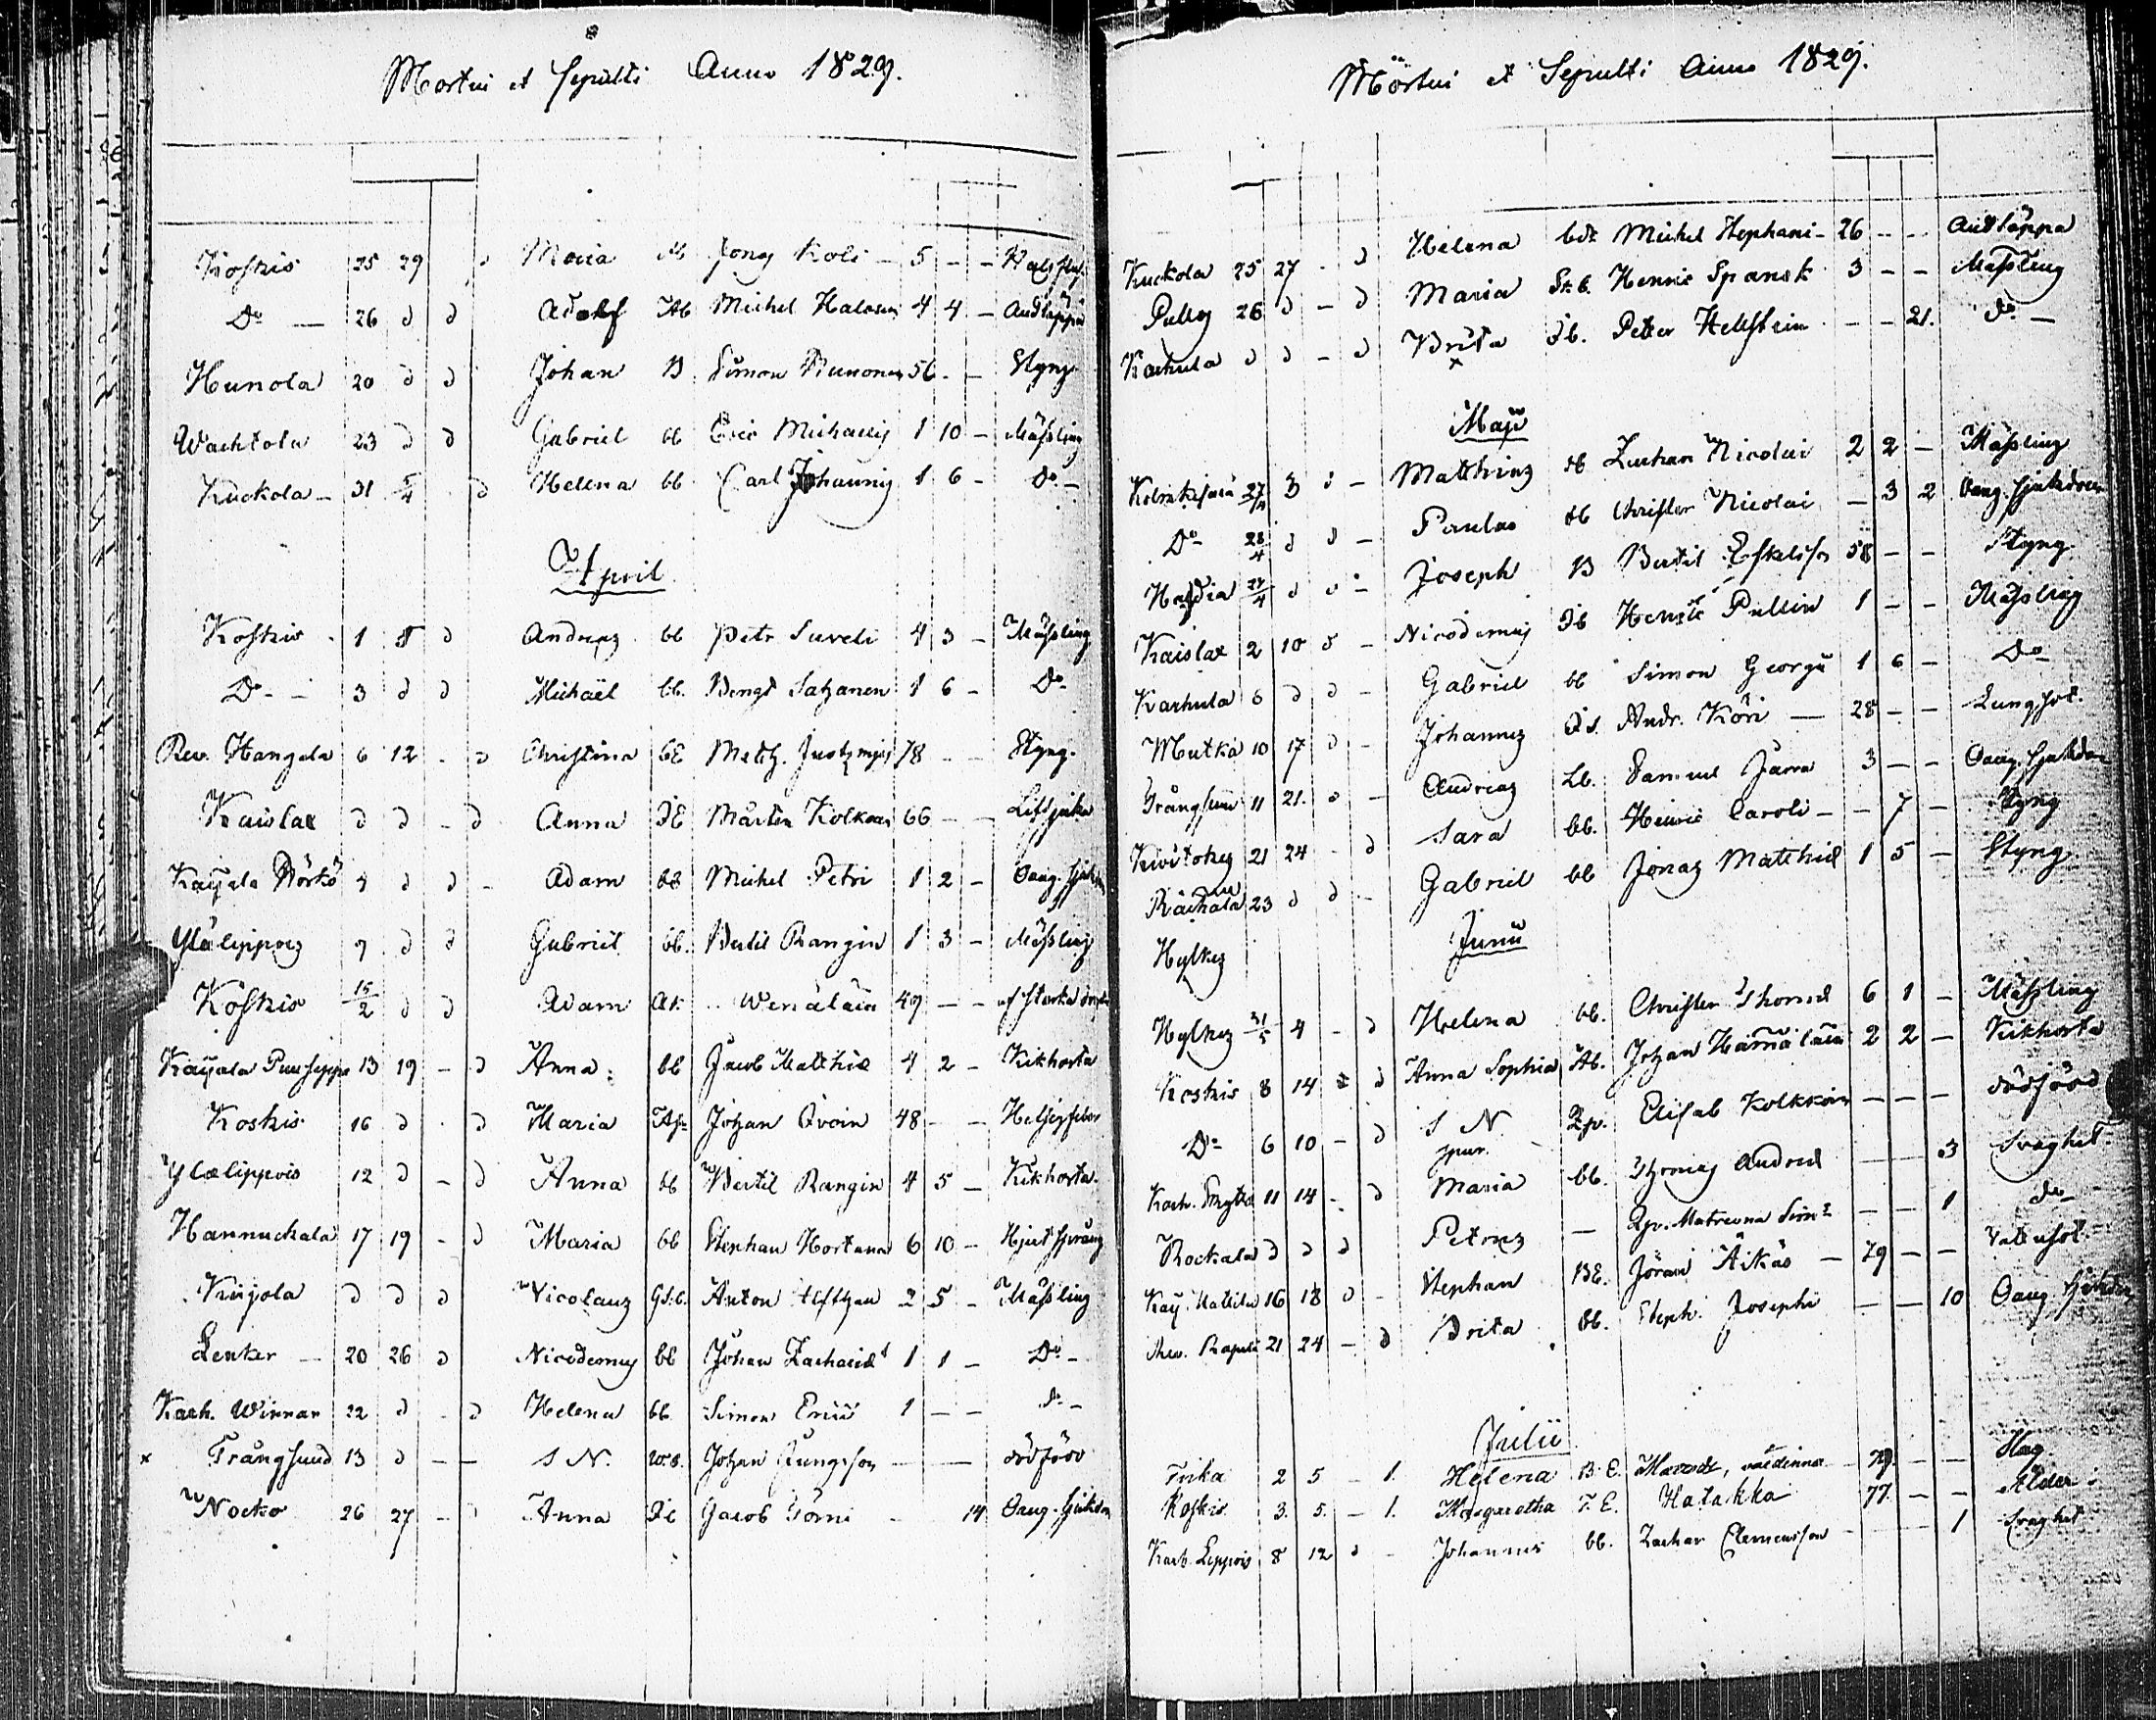 Mortui et Sepulti Anno 1829.
Koskis 25 29 d Maria Jonas Koli - 5 - - Halsfluss
Do - 26 d d Adolf Michel Halosen 4 4 - Andtäppa
Hunola 20 d d Johan B Simon Hunonen 56 - - Styng
Wachtola 23 d d Gabriel bb Eric Michaelis 1 10 - Mässling
Kuckola - 31 5/4 - d Helena bb Carl Johannis 1 6 - Do -
April
Koskis - 1 5 d Andreas bb Petr Suveli 4 3 - Mässling
Do - - 3 d d Michaël bb. Bengt Satzanen 1 6 - Do
Rev. Hangala 6 12 - d Christina bE Matth. 78 - - Styng.
Kaislax d d - d Anna dE Mårten Kolkoin 66 - - Lifsjuka
Kayala Pörkö 4 d d - Adam bb Michel Petri 1 2 - Oang. Sjukd
Yläleppois 7 d d Gabriel bb. Bertil Rangin 1 3 - Mässling
Koskis 15/2 d d Adam Ak Wenäläin 49 - - af starka dryck
Kayala Puuseppä 13 19 - d Anna bb Jacob Matthiæ 4 2 - Kikhosta
Koskis 16 d - d Maria Johan Avoin 48 - -
Ylæleppois 12 d - d Anna bb Bertil Rangin 4 5 - Kikhosta.
Hannuckala 17 19 - d Maria bb Stephan Hortana 6 10 - Hjertsprång
Kiyola d d d Nicolaus Anton 2 5 - Mässling
Lenker - 20 26 d Nicodemus bb Johan Zachariæ 1 1 - Do -
Kach. Winnan 22 d - d Helena bb Simon Erici 1 - - do -
x Trångsund 13 d - - S N. Johan Ljungson - - - dödfödd
Nocko 26 27 - d Anna db Jacob Torni - 14 Oang. Sjukdom
Mortui et Sepulti Anno 1829.
Kuckola 25 27 - d Helena bdr Michel Stephani - 26 - - Andtäppa
Pulli 26 d - d Maria St. b. Henric Spansk 3 - - Mässling
Karhula d d - d Brita db. Peter Hellstein - - 21. do -
x
Maji
27/4 3 d - Matthias db Zachar. Nicolai 2 2 - Mässling
Do 28/4 d d - Paulus bb Christer Nicolai - 3 2 Oang. Sjukdom
29/4 d d - Joseph B Bertil Eskelson 58 - - Styng.
Kaislax 2 10 d - Nicodemus db Henric Pullin 1 - - Mässling
Karhula 6 d d - Gabriel bb Simon Georgii 1 6 - Do
Mutka 10 17 d - Johannes Ds. Andr. Köri - 28 - - Lungsot.
Trångsund 11 21. d - Andreas Lb. Samuel Järra 3 - - Oang. Sjukdom
Kivitokeg 21 24 - d Sara bb. Henric Caroli - - 7 - Styng
Räickälä 23 d d - Gabriel bb Jonas Matthiæ 1 5 - Styng
Hylkes
Junii
Hylkes 31/5 4 - d Helena bb. Christer Thomæ 6 1 - Mässling
Koskis 8 14 - d Anna Sophia Ab. Johan Hämäläin 2 2 - Kikhosta
Do 6 10 - d S N Qp. Elisab Kolkkoin - - - dödfödd
spur.
Kach. 11 14 - d Maria bb. Thomas Andreæ - - 3 Svaghet
Rockala d d d Petrus - Qp. Matreona - - 1 do
Kay. Mattila 16 18 d - Stephan BE. Jöran Äikäs - 79 - - Vattusot.
Rev. Rapeli 21 24 - d Brita bb. Steph. Josephi - - 10 Oang. Sjukdom
Julii
Tvika 2 5 - 1. Helena B. E. 79. - - Slag
Koskis 3. 5. - 1. Margaretha T. E. Hatakka 77. - - Ålder
Karh. Leppois 8 12 d - Johannes bb. Zachar Clemensson - - - 1 Svaghet